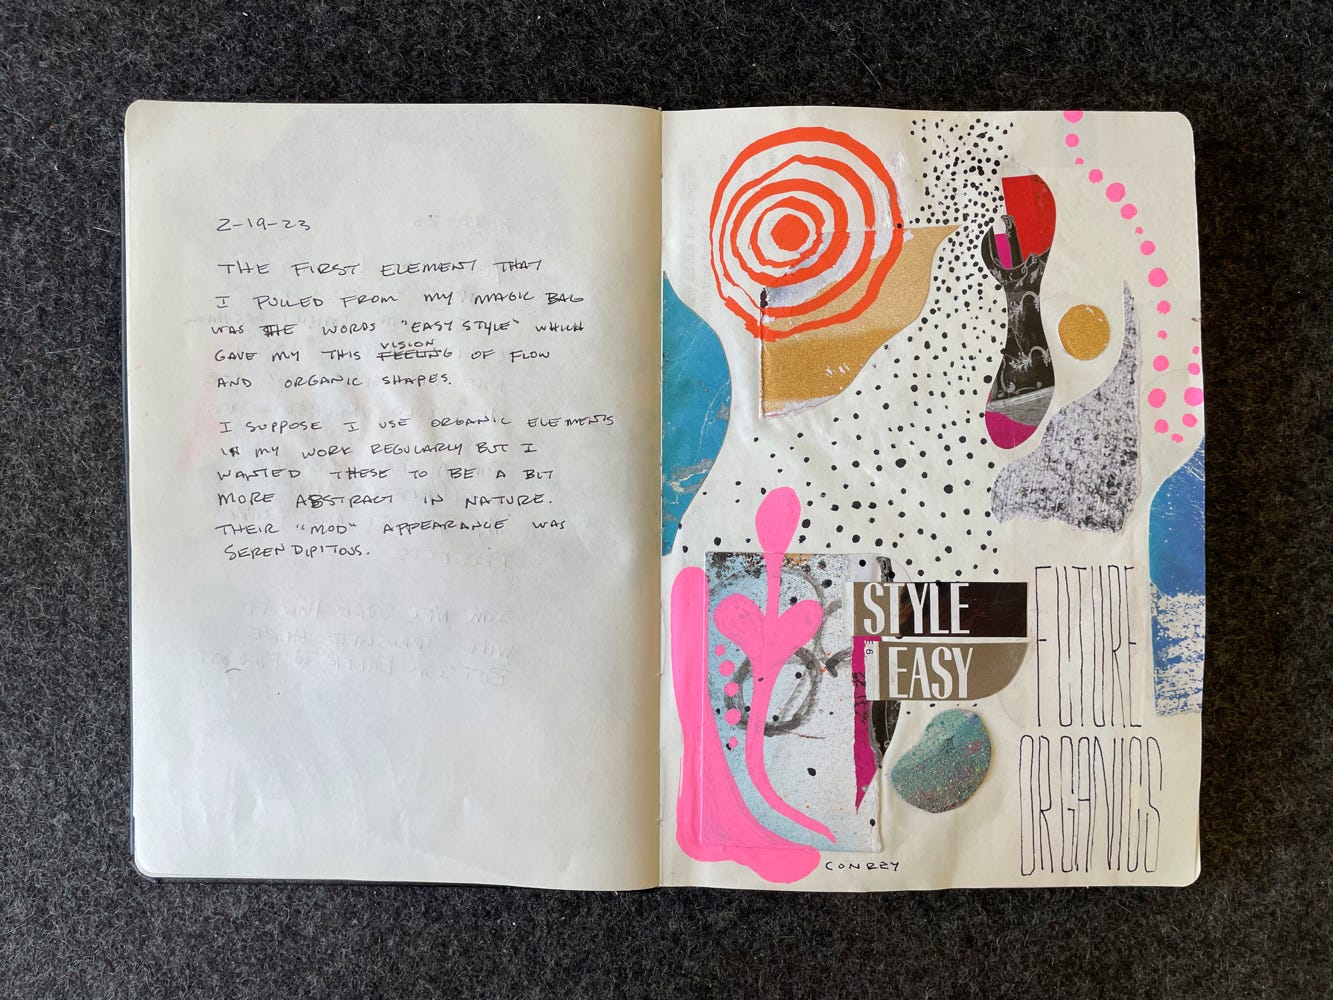 2-19-23
THE FIRST ELEMENT THAT
I PULLED FROM MY MAGIC BAG
WAS THE WORDS "EASY STYLE" WHICH
GAVE MY THIS FEELING VISION OF FLOW
AND ORGANIC SHAPES.
I SUPPOSE I USE ORGANIC ELEMENTS
IN MY WORK REGULARLY BUT I
WANTED THESE TO BE A BIT
MORE ABSTRACT IN NATURE.
THEIR "MOD" APPEARANCE WAS
SERENDIPITOUS.
STYLE
EASY
FUTURE
ORGANICS
CONREY